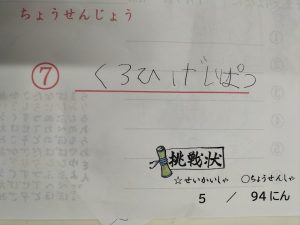 ちょうせんじょう
⑦ くろひげいぱつ
挑戦状
☆せいかいしゃ ○ちょうせんしゃ
5 / 94にん